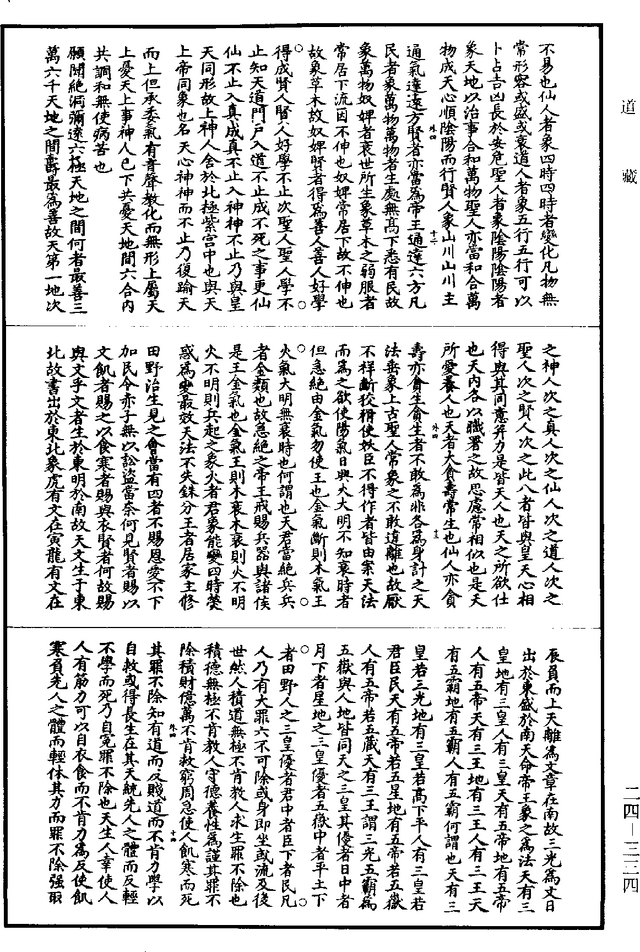 道藏
不易也仙人者象四時四時者變化凡物無
常形容或盛或衰道人者象五行五行可以
卜占吉凶長於安危聖人者象陰陽陰陽者
象天地以治事合和萬物聖人亦當和合萬
物成天心順陰陽而行賢人象山川山川主
通氣達遠方賢者亦當為帝王通達六方凡
民者象萬物萬物者生處無高下悉有民故
象萬物奴婢者衰世所生象草木之弱服者
常居下流因不伸也奴婢常居下故不伸也
故象草木故奴婢賢者得為善人善人好學
得成賢人賢人好學不止次聖人聖人學不
止知天道門戶入道不止成不死之事更仙
仙不止入真成真不止入神神不止乃與皇
天同形故上神人舍於北極紫宮中也與天
上帝同象也名天心神神而不止乃復踰天
而上但承委氣有音聲教化而無形上屬天
上憂天上事神人已下共憂天地間六合內
共調和無使病苦也
願聞絕洞彌遠六極天地之間何者最善三
萬六千天地之間壽最為善故天第一地次
之神人次之真人次之仙人次之道人次之
聖人次之賢人次之此八者皆與皇天心相
得與其同意并力是皆天人也天之所欲仕
也天內各以職署之故思慮常相似也是天
所愛養人也天者大貪壽常生也仙人亦貪
壽亦貪生貪生者不敢為非各為身計之天
法垂象上古聖人常象之不敢違離也故厭
不祥斷狡猾使妖臣不得作者皆由案天法
而為之欲使陽氣日興火大明不知衰時者
但急絕由金氣勿使王也金氣斷則木氣王
火氣大明無衰時也何謂也天君當絕兵兵
者金類也故急絕之帝王戒賜兵器與諸侯
是王金氣也金氣王則木衰木衰則火不明
火不明則兵起之象火者君象能變四時熒
惑為變最效天法不失銖分王者居家主修
田野治生見之會當有四者不賜恩愛不下
加民令赤子無以訟盜當奈何見賢者賜以
文飢者賜之以食寒者賜與衣賢者何故賜
與文乎文者生於東明於南故天文生于東
北故書出於東北象虎有文在寅龍有文在
辰負而上天離為文章在南故三光為文日
出於東盛於南天命帝王象之為法天有三
皇地有三皇人有三皇天有五帝地有五帝
人有五帝天有三王地有三王人有三王天
有五霸地有五霸人有五霸何謂也天有三
皇若三光地有三皇若高下平人有三皇若
君臣民天有五帝若五星地有五帝若五嶽
人有五帝若五藏天有三王謂三光五霸為
五嶽與人地皆同天之三皇其優者日中者
月下者星地之三皇優者五嶽中者平土下
者田野人之三皇優者君中者臣下者民凡
人乃有大罪六不可除或身即坐或流及後
世然人積道無極不肯教人求生罪不除也
積德無極不肯教人守德養性為謹其罪不
除積財億萬不肯救窮周急使人飢寒而死
其罪不除知有道而反賤道而不肯力學以
自救或得長生在其天統先人之體而反輕
不學而死乃自冤罪不除也天生人幸使人
人有筋力可以自衣食而不肯力為反使飢
寒負先人之體而輕休其力而罪不除強取
二四—三三四